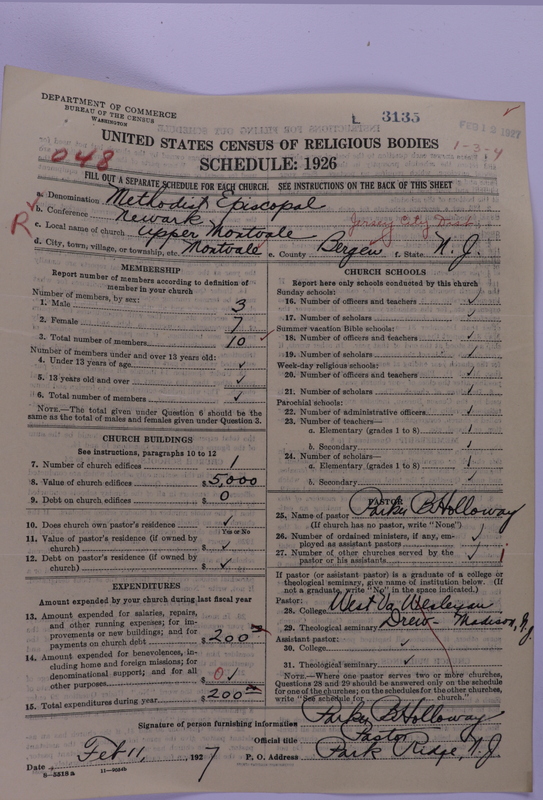 DEPARTMENT OF COMMERCE
BUREAU OF THE CENSUS
WASHINGTON
L 3135
FEB 18 1927
1-3-4
UNITED STATES CENSUS OF RELIGIOUS BODIES
048
SCHEDULE: 1926
FILL OUT A SEPARATE SCHEDULE FOR EACH CHURCH. SEE INSTRUCTIONS ON THE BACK OF THIS SHEET
a. Denomination Methodist Episcopal
b. Conference Newark Jersey City Dist
R c. Local name of church Upper Montvale
d. City, town, village, or township, etc. Montvale e. County Bergen f. State N. J.
MEMBERSHIP
Report number of members according to definition of member in your church
Number of members, by sex:
1. Male 3
2. Female 7
3. Total number of members 10
Number of members under and over 13 years old:
4. Under 13 years of age ✓
5. 13 years old and over ✓
6. Total number of members ✓
NOTE.—The total given under Question 6 should be the same as the total of males and females given under Question 3.
CHURCH BUILDINGS
See instructions, paragraphs 10 to 12
7. Number of church edifices 1
8. Value of church edifices $5,000
9. Debt on church edifices $ 0
10. Does church own pastor's residence ✓
Yes or No
11. Value of pastor's residence (if owned by church) $ ✓
12. Debt on pastor's residence (if owned by church) $ ✓
EXPENDITURES
Amount expended by your church during last fiscal year
13. Amount expended for salaries, repairs, and other running expenses; for improvements or new buildings; and for payments on church debt $200
14. Amount expended for benevolences, including home and foreign missions; for denominational support; and for all other purposes $ 0
15. Total expenditures during year $200
CHURCH SCHOOLS
Report here only schools conducted by this church
Sunday schools:
16. Number of officers and teachers ✓
17. Number of scholars ✓
Summer vacation Bible schools:
18. Number of officers and teachers ✓
19. Number of scholars ✓
Week-day religious schools:
20. Number of officers and teachers ✓
21. Number of scholars ✓
Parochial schools:
22. Number of administrative officers ✓
23. Number of teachers—
a. Elementary (grades 1 to 8) ✓
b. Secondary ✓
24. Number of scholars—
a. Elementary (grades 1 to 8) ✓
b. Secondary ✓
PASTOR
25. Name of pastor Parker B Holloway
(If church has no pastor, write "None")
26. Number of ordained ministers, if any, employed as assistant pastors ✓
27. Number of other churches served by the pastor or his assistants ✓ 1
If pastor (or assistant pastor) is a graduate of a college or theological seminary, give name of institution below. (If not a graduate, write "No" in the space indicated.)
Pastor:
28. College West Va. Wesleyan
29. Theological seminary Drew - Madison, N J
Assistant pastor:
30. College ✓
31. Theological seminary ✓
NOTE.—Where one pastor serves two or more churches, Questions 28 and 29 should be answered only on the schedule for one of the churches; on the schedules for the other churches, write "See schedule for church."
Signature of person furnishing information Parker B Holloway
Official title Pastor
Date Feb 11, 1927 P. O. Address Park Ridge, N. J.
8-5518a